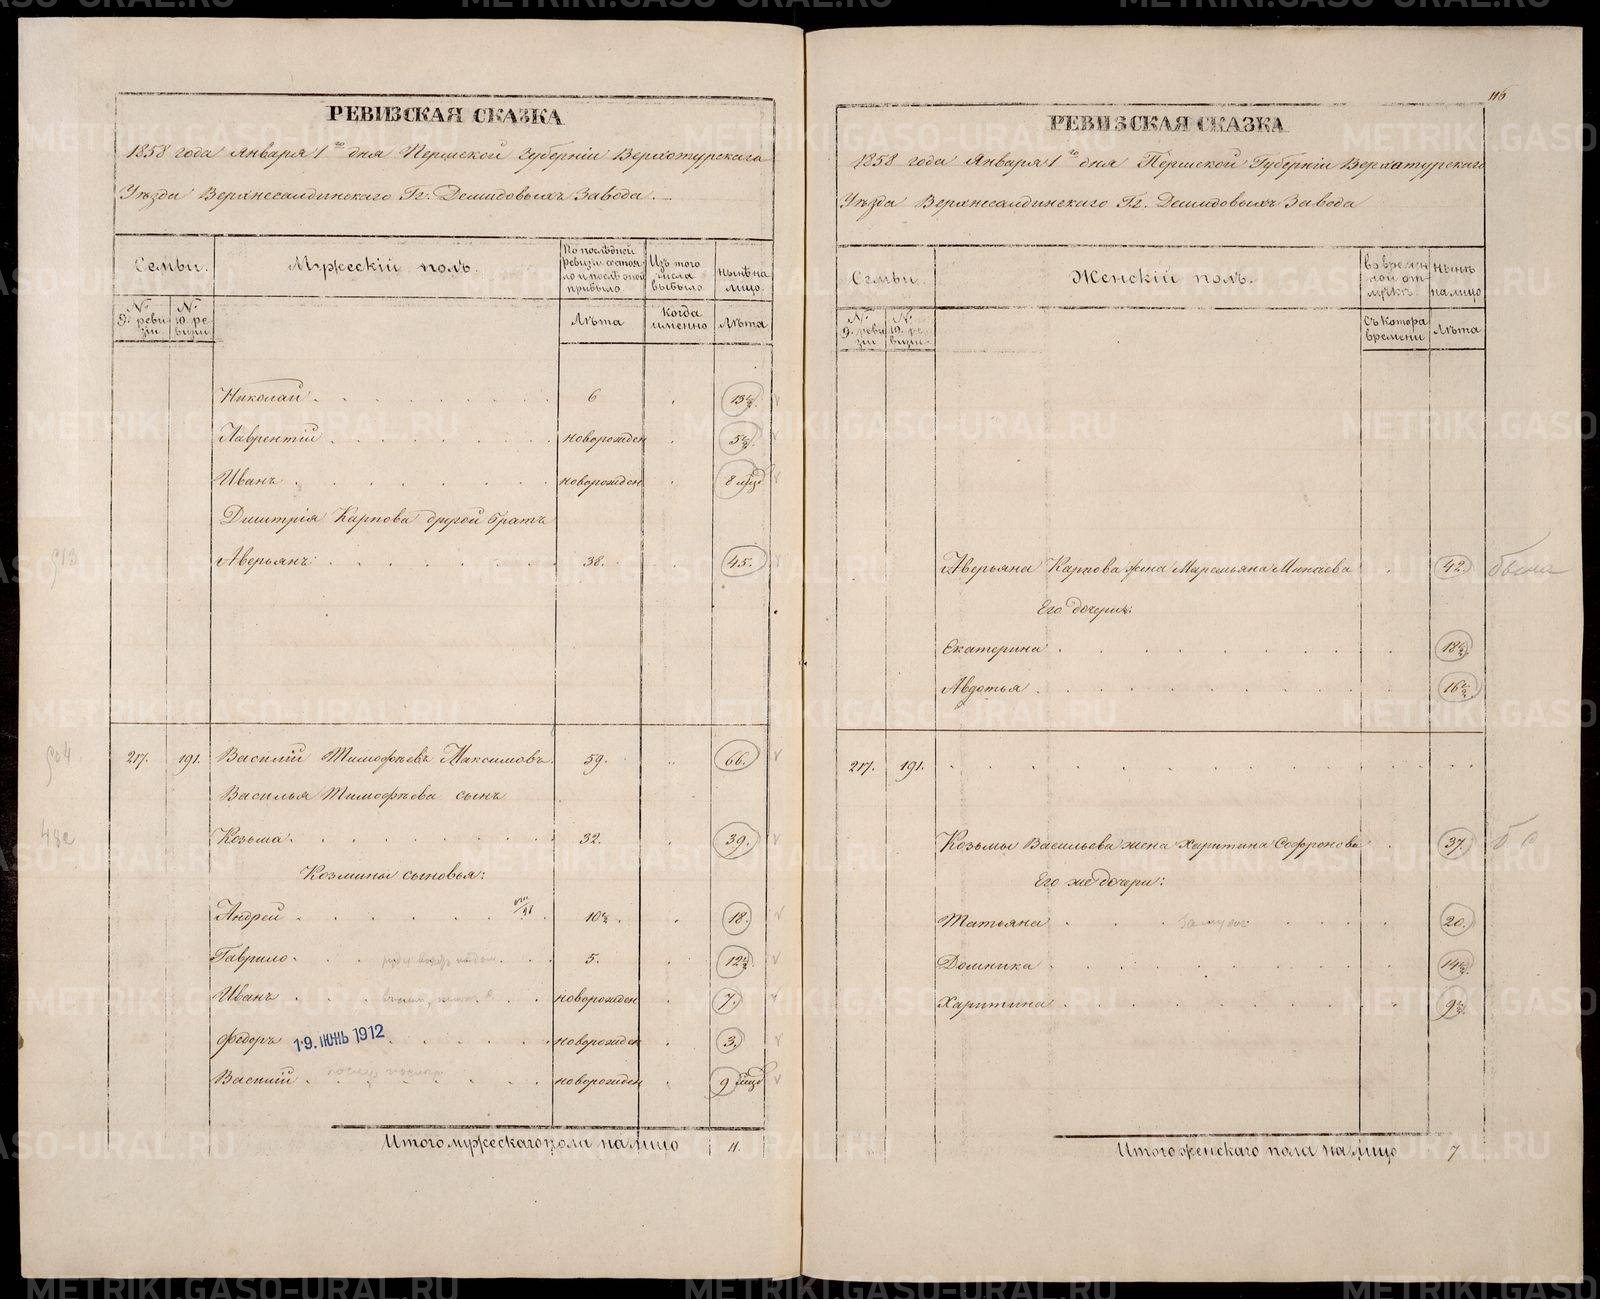 РЕВИЗСКАЯ СКАЗКА
1858 года Января 1го дня Пермской Губерніи Верхотурскаго
Уѣзда Верхнесалдинскаго Гг. Демидовыхъ Завода.
Семьи.
Мужескій полъ.
По послѣдней ревизіи состояло и послѣ оной прибыло
Изъ того числа выбыло
нынѣ на лицо.
№ 9. ревизіи
№ 10. ревизіи
Лѣта
Когда именно
Лѣта
Николай 6 13½
Лаврентій новорожден 5½
Иванъ новорожден 8 мѣц
Дмитрія Карпова другой братъ
Аверьянъ 38. 45.
217. 191. Василій Тимофѣевъ Максимовъ. 59. 66.
Василья Тимофѣева сынъ
Козьма 32. 39.
Козмины сыновья:
Андрей 10½ 18.
Гаврило 5. 12½
Иванъ новорожден 7.
Федоръ 19. ІЮНЬ 1912 новорожден 3.
Василій новорожден 9 мѣц
Итого мужескаго пола на лицо 11.
116
РЕВИЗСКАЯ СКАЗКА
1858 года Января 1го дня Пермской Губерніи Верхатурскаго
Уѣзда Верхнесалдинскаго Гг. Демидовыхъ Завода
Семьи.
Женскій полъ.
во временной отлучкѣ.
нынѣ на лицо
№ 9. ревизіи
№ 10. ревизіи
Съ котора времени
Лѣта
Аверьяна Карпова жена Маремьяна Минаева 42.
Его дочери:
Екатерина 18½
Авдотья 16½
217. 191.
Козьмы Васильева жена Харитина Софронова 37.
Его же дочери:
Татьяна 20.
Домника 14½
Харитина 9½
Итого женскаго пола на лицо 7
METRIKI.GASO-URAL.RU